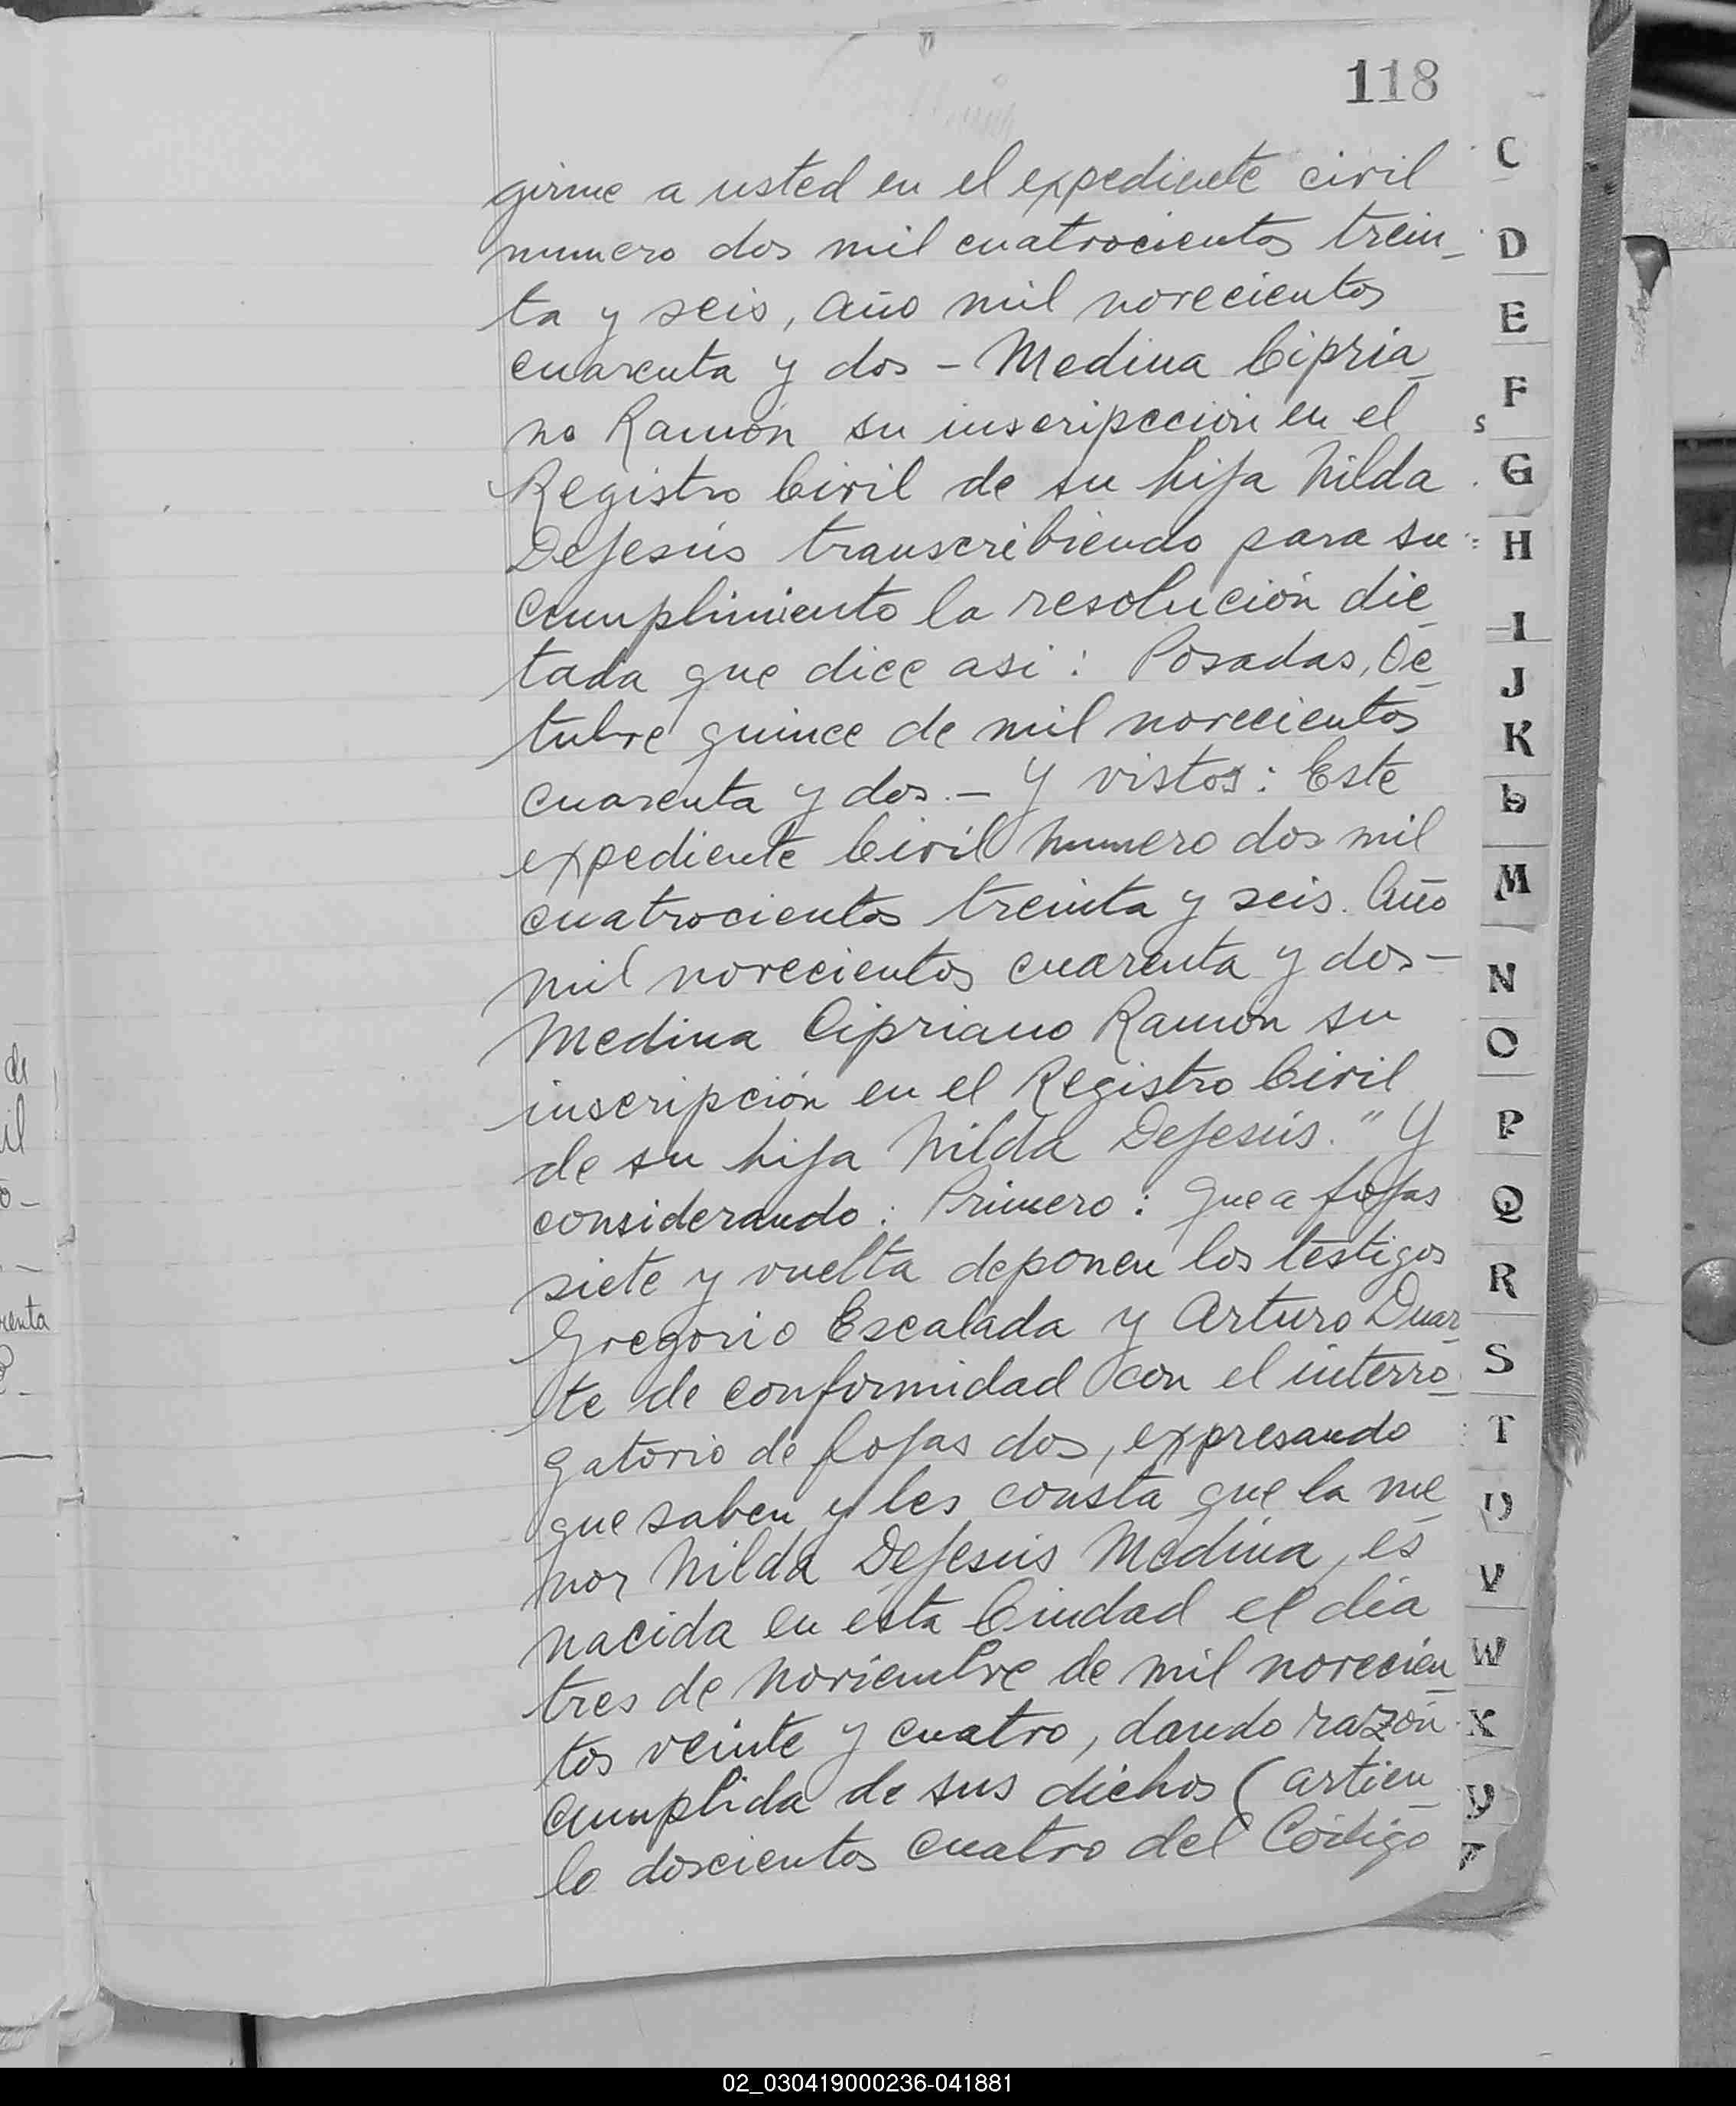 118
girme a usted en el expediente civil
numero dos mil cuatrocientos trein_
ta y seis, año mil novecientos
cuarenta y dos - Medina Cipria_
no Ramón su inscripcción en el
Registro Civil de su hija Nilda
DeJesús transcribiendo para su
cumplimiento la resolución dic_
tada que dice asi: Posadas, Oc_
tubre quince de mil novecientos
cuarenta y dos.- Y vistos: Este
expediente Civil numero dos mil
cuatrocientos treinta y seis. Año
mil novecientos cuarenta y dos-
Medina Cipriano Ramón su
inscripción en el Registro Civil
de su hija Nilda DeJesús." Y
considerando: Primero: que a fojas
siete y vuelta deponen los testigos
Gregorio Escalada y Arturo Duar_
te de conformidad con el interro_
gatorio de fojas dos, expresando
que saben y les consta que la me_
nor Nilda DeJesús Medina, es
nacida en esta Ciudad el día
tres de Noviembre de mil novecien_
tos veinte y cuatro, dando razón
cumplida de sus dichos (articu_
lo doscientos cuatro del Código
C
D
E
F
S
G
H
I
J
K
L
M
N
O
P
Q
R
S
T
U
V
W
X
de
il
o-
renta
02_030419000236-041881